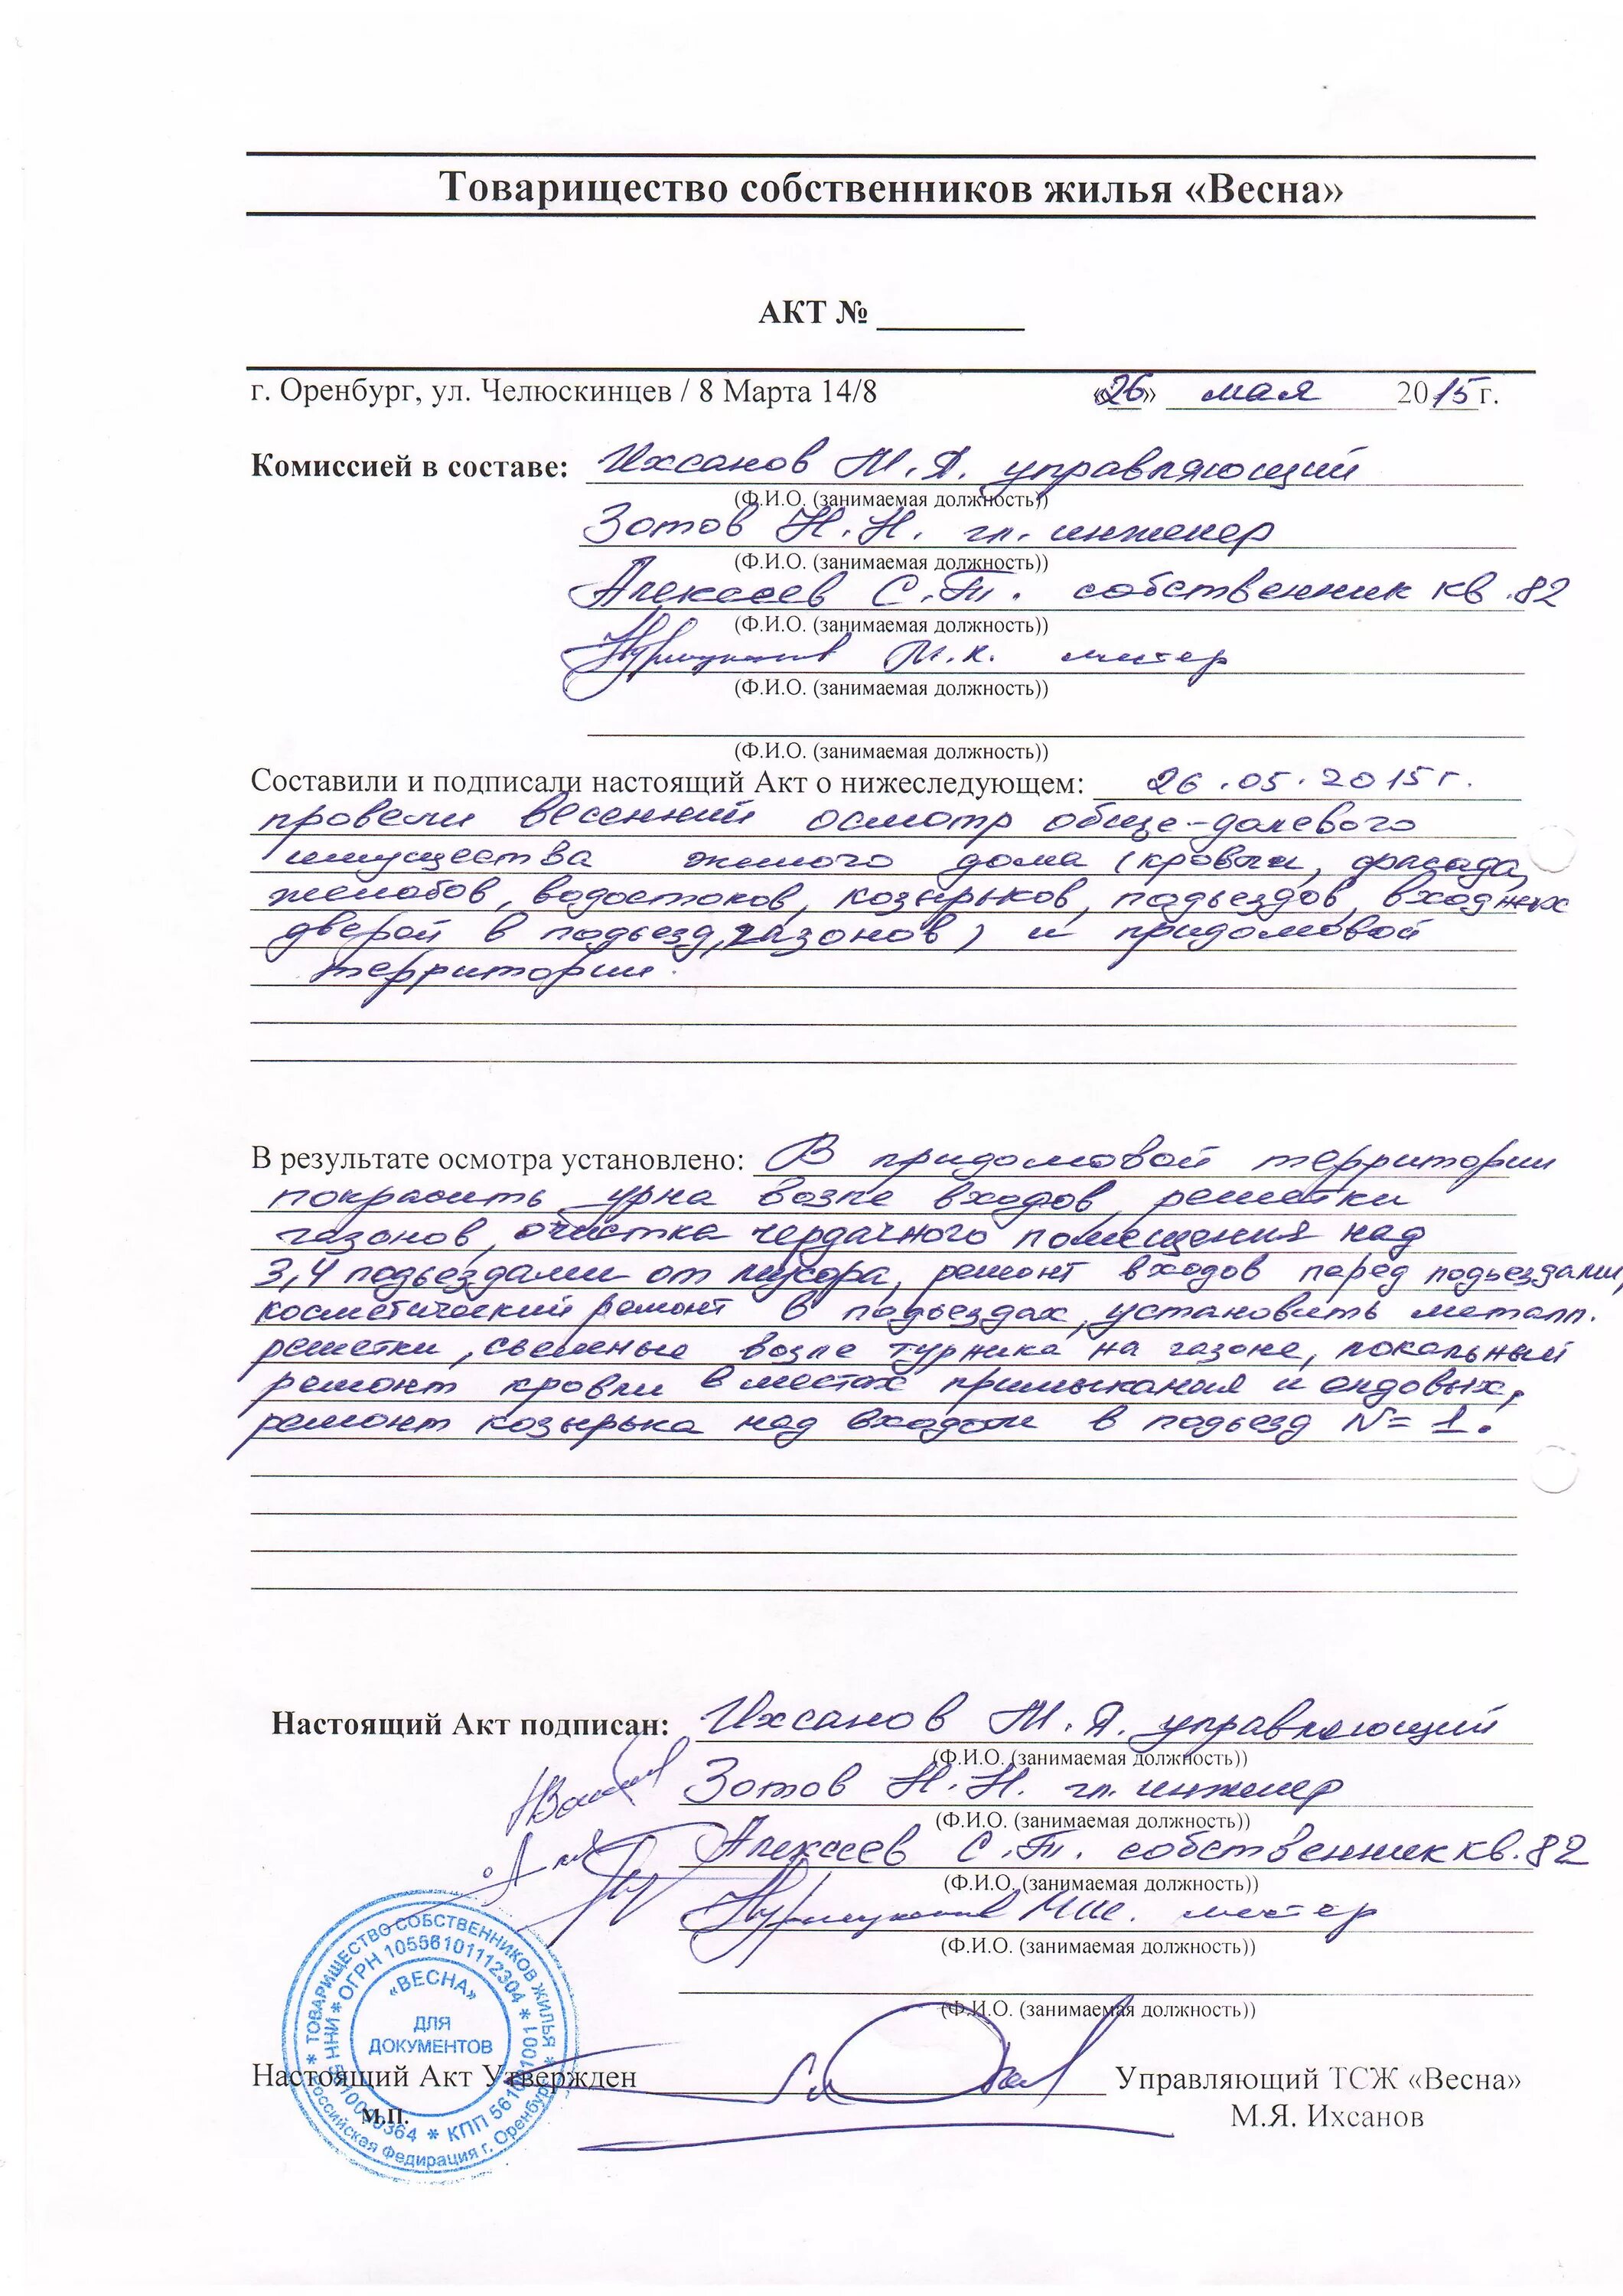 Товарищество собственников жилья «Весна»
АКТ № ________
г. Оренбург, ул. Челюскинцев / 8 Марта 14/8 «26» мая 2015 г.
Комиссией в составе: Ихсанов М.Я. управляющий
(Ф.И.О. (занимаемая должность))
Зотов Н.Н. гл. инженер
(Ф.И.О. (занимаемая должность))
Алексеев С.Т. собственник кв.82
(Ф.И.О. (занимаемая должность))
мастер
(Ф.И.О. (занимаемая должность))
(Ф.И.О. (занимаемая должность))
Составили и подписали настоящий Акт о нижеследующем: 26.05.2015 г.
провели весенний осмотр обще-долевого
имущества жилого дома (кровли, фасада,
желобов, водостоков, козырьков, подъездов, входных
дверей в подьезд, газонов) и придомовой
территории.
В результате осмотра установлено: В придомовой территории
покрасить урна возле входов, решетки
газонов, очистка чердачного помещения над
3,4 подьездами от мусора, ремонт входов перед подьездами,
косметический ремонт в подьездах, установить металл.
решетки, сьемные возле турника на газоне, локальный
ремонт кровли в местах примыкания и ендовых,
ремонт козырька над входом в подьезд N= 1.
Настоящий Акт подписан: Ихсанов М.Я. управляющий
(Ф.И.О. (занимаемая должность))
Зотов Н.Н. гл. инженер
(Ф.И.О. (занимаемая должность))
Алексеев С.Т. собственник кв.82
(Ф.И.О. (занимаемая должность))
мастер
(Ф.И.О. (занимаемая должность))
(Ф.И.О. (занимаемая должность))
ТОВАРИЩЕСТВО СОБСТВЕННИКОВ ЖИЛЬЯ
ОГРН 10556101112304
«ВЕСНА»
ДЛЯ
ДОКУМЕНТОВ
Российская Федирация г. Оренбург
Настоящий Акт Утвержден Управляющий ТСЖ «Весна»
М.П. М.Я. Ихсанов